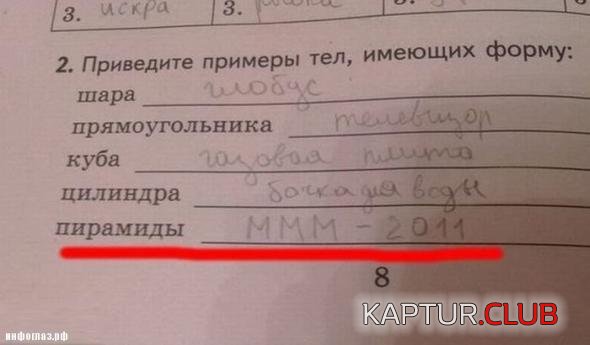 3. искра 3.
2. Приведите примеры тел, имеющих форму:
шара глобус
прямоугольника телевизор
куба газовая плита
цилиндра бочка для воды
пирамиды МММ - 2011
8
KAPTUR.CLUB
инфоглаз.рф